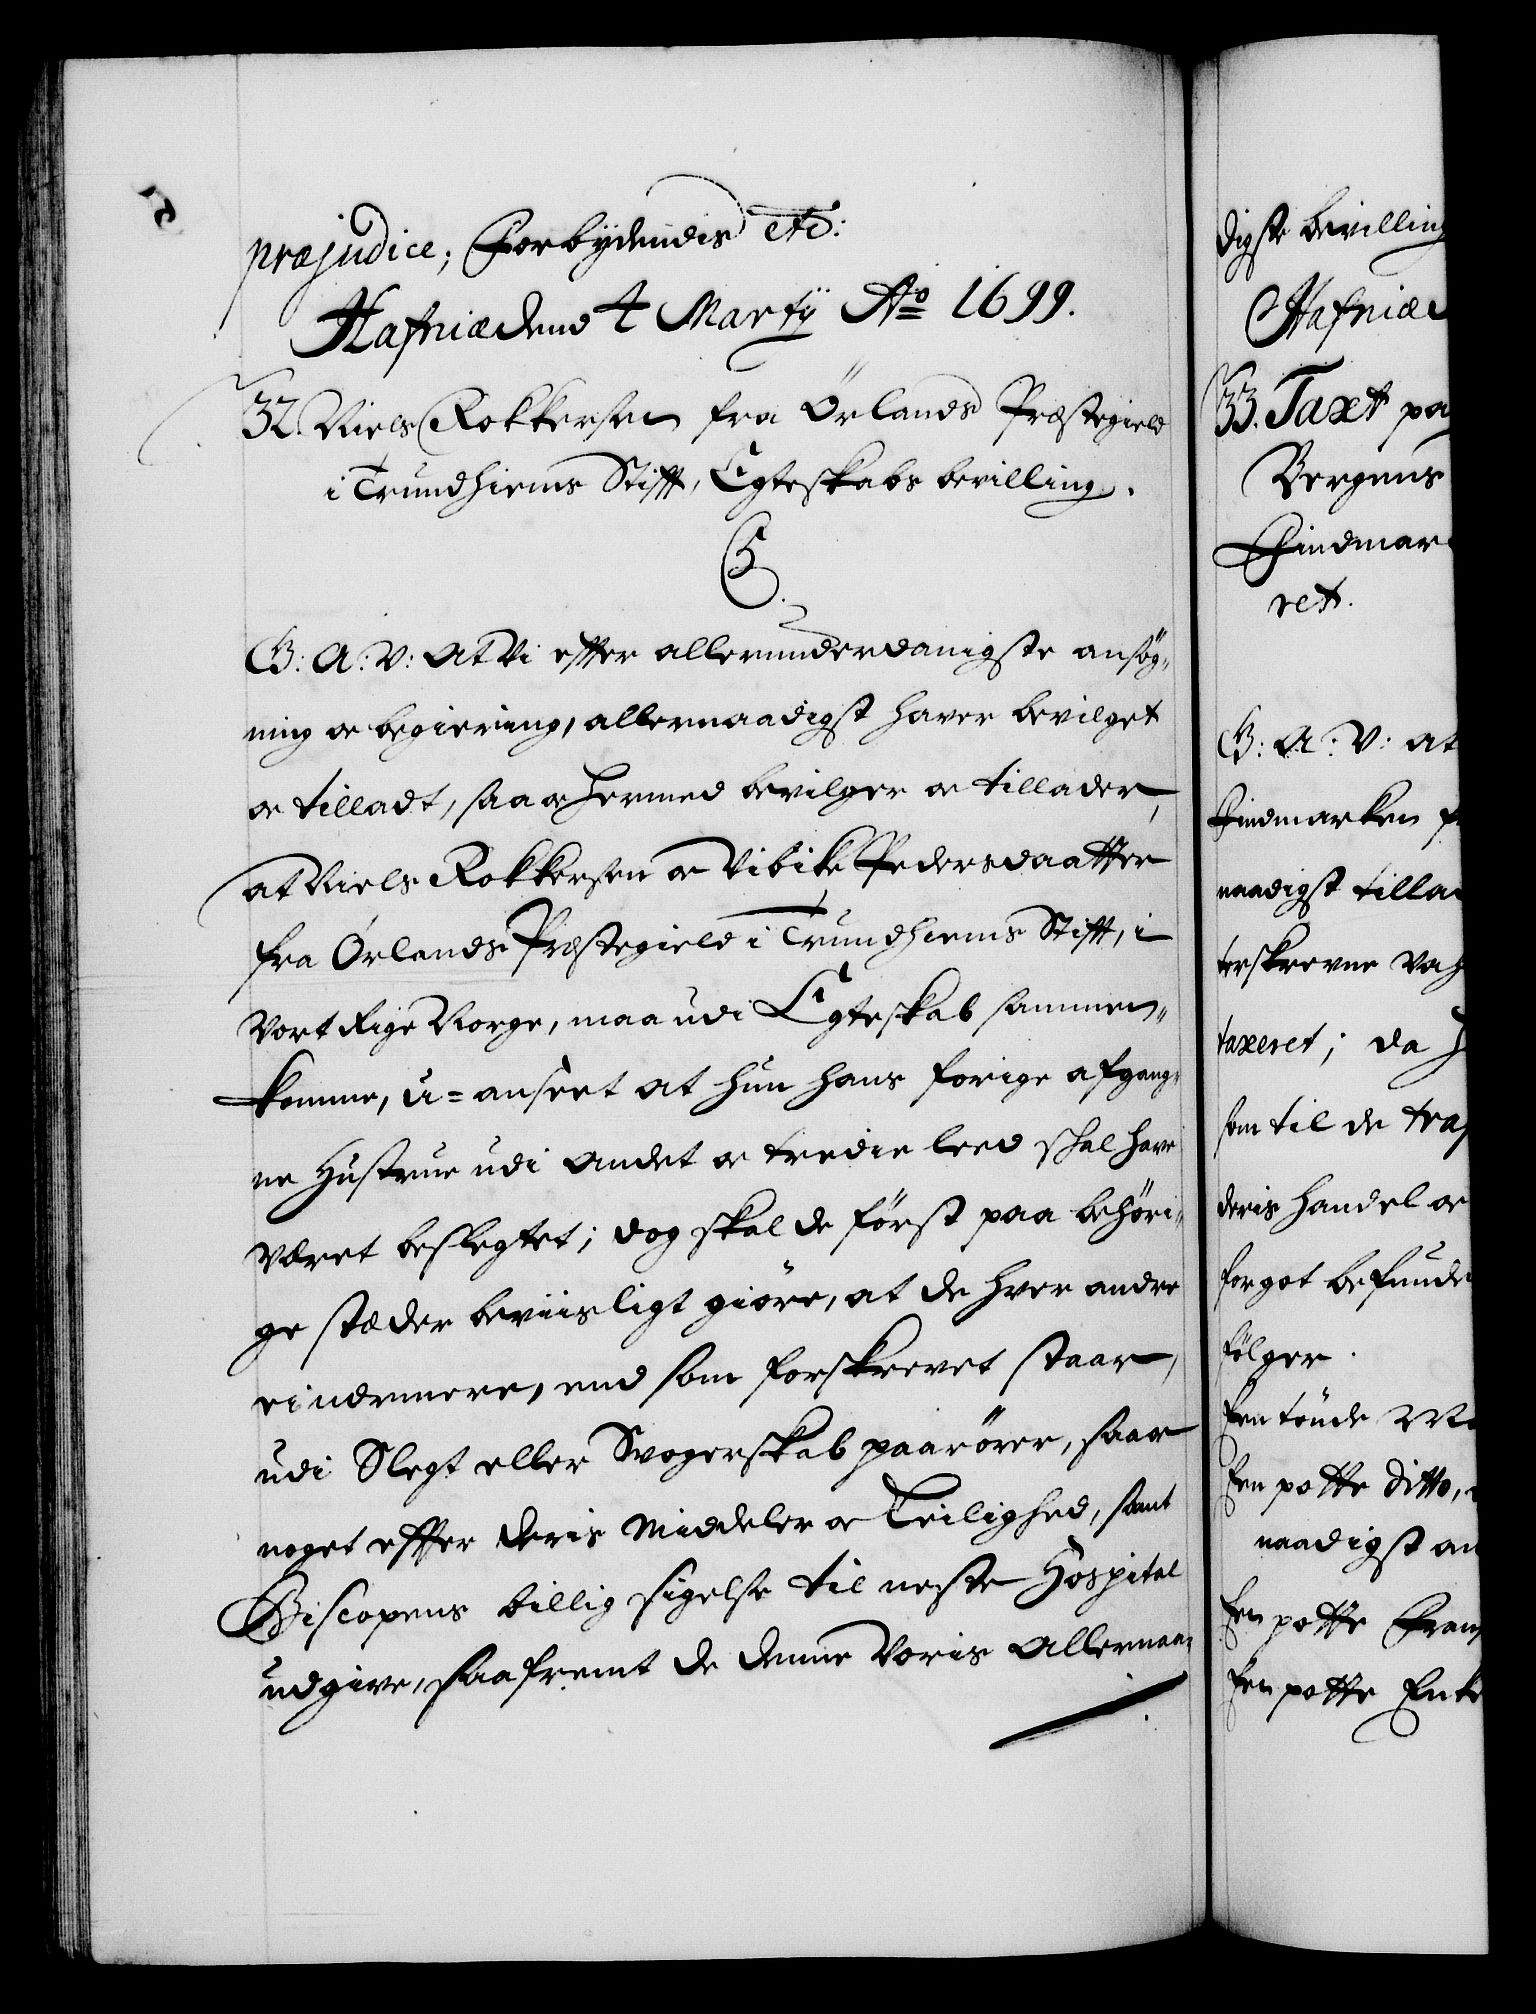 præjudice; Forbydendis etc:
Hafniæ dend 4 Martij Ao 1699.
32. Niels Rokkersen fra Örlands Præstegield
i Trundhiems Stifft, Egteskabs bevilling.
C5.
G: A: V: At Vi effter allerunderdanigste ansög„
ning oc begiering, allernaadigst haver bevilget
oc tilladt, saa oc hermed bevilger oc tillader,
at Niels Rokkersen oc Vibike Pedersdaatter
fra Örlands Præstegield i Trundhiems Stifft, i
Vort Rige Norge, maa udi Egteskab sammen„
komme, u=anseet at hun hans forige afgang„
ne Hustrue udi andet oc tredie leed skal have
været beslegtet; dog skal de först paa behöri„
ge stæder beviisligt giöre, at de hver andre
ei nermere, end som forskrevet staar,
udi Slegt eller Svogerskab paarörer, saa oc
noget effter deris Middeler oc Leilighed, samt
Biscopens billig sigelse til neste Hospital
udgive, saafremt de denne Voris Allernaa„
digste bevilling
Hafniæ d
33. Taxt paa
Bergens
Findmar
ret.
G: A: V: at
Findmarken
naadigst tilla
terskrevne Vah
taxeret; da
som til de tra
deris handel oc
forgot befunde
fölger.
Een tönde
Een potte ditto,
naadigst an
Een potte Fran
Een potte Enke